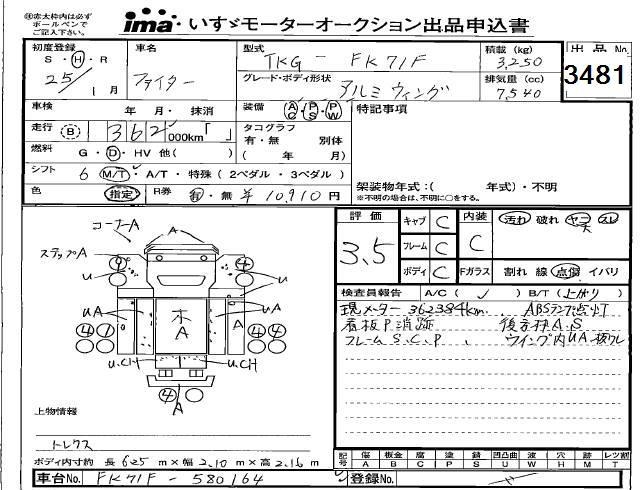 ㊟赤太枠内は必ず
ボールペンで
ご記入下さい。
ima いすゞモーターオークション出品申込書
初度登録 車名 型式 積載 (kg) 出品No.
S・H・R 25 1月 ファイター TKG - FK71F 3,250 3481
グレード・ボディ形状 アルミウィング 排気量 (cc) 7,540
車検 年 月・抹消 装備 AC PS PW 特記事項
走行 B 362 000km「 」 タコグラフ
有・無 別体
燃料 G・D・HV 他( ) ( 年 月)
シフト 6 M/T・A/T・特殊 (2ペダル・3ペダル)
架装物年式:( 年式)・不明
色 指定 R券 有・無 ¥10,910円 ※不明の場合は、不明に○をする。
評価 3.5 キャブ C 内装 C 汚れ 破れ ヤニ スレ
フレーム C
ボディ C Fガラス 割れ 線 点傷 イバリ
検査員報告 A/C ( ) B/T (上がり)
現メーター 362384km. ABSランプ点灯
看板P消跡
フレームS.C.P.
コーナーA A
ステップA
U U
UA A UA
木
A
U.CH U.CH
A
上物情報
トレクス
ボディ内寸約 長 625 m×幅 2.10 m×高 2.16 m
記号 傷 A 板金 B 腐 C 塗 P 錆 S 凹凸曲 U 波 W 穴 H 無 M レツ割 T
車台No. FK71F - 580164 登録No.